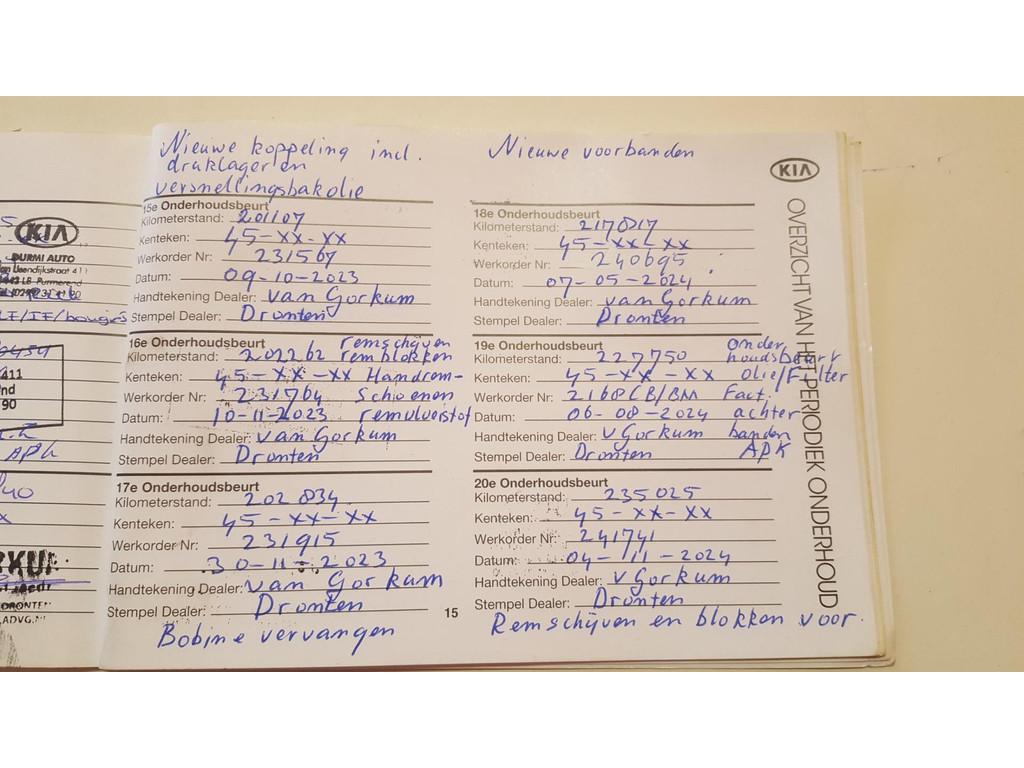 KIA
DURMI AUTO
411
nd
90
APK
DRONTEN
Nieuwe koppeling incl.
druklager en
versnellingsbakolie
15e Onderhoudsbeurt
Kilometerstand: 201107
Kenteken: 45-XX-XX
Werkorder Nr: 231567
Datum: 09-10-2023
Handtekening Dealer: van Gorkum
Stempel Dealer: Dronten
16e Onderhoudsbeurt remschijven
Kilometerstand: 202262 remblokken
Kenteken: 45-XX-XX Handrem-
Werkorder Nr: 231764 Schoenen
Datum: 10-11-2023 remvloeistof
Handtekening Dealer: van Gorkum
Stempel Dealer: Dronten
17e Onderhoudsbeurt
Kilometerstand: 202834
Kenteken: 45-XX-XX
Werkorder Nr: 231915
Datum: 30-11-2023
Handtekening Dealer: van Gorkum
Stempel Dealer: Dronten
Bobine vervangen
15
Nieuwe voorbanden
18e Onderhoudsbeurt
Kilometerstand: 217817
Kenteken: 45-XX-XX
Werkorder Nr: 240695
Datum: 07-05-2024
Handtekening Dealer: van Gorkum
Stempel Dealer: Dronten
19e Onderhoudsbeurt onder
Kilometerstand: 227750 houdsbeurt
Kenteken: 45-XX-XX olie/Filter
Werkorder Nr: 2168CB/BM Fact.
Datum: 06-08-2024 achter
Handtekening Dealer: v Gorkum banden
Stempel Dealer: Dronten APK
20e Onderhoudsbeurt
Kilometerstand: 235025
Kenteken: 45-XX-XX
Werkorder Nr: 241741
Datum: 04-11-2024
Handtekening Dealer: v Gorkum
Stempel Dealer: Dronten
Remschijven en blokken voor.
KIA
OVERZICHT VAN HET PERIODIEK ONDERHOUD